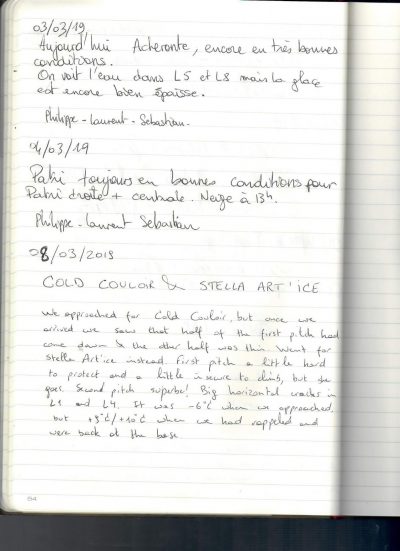 03/03/19
Aujourd'hui Acheronte, encore en très bonnes
conditions.
On voit l'eau dans L5 et L8 mais la glace
est encore bien épaisse.
Philippe - Laurent - Sebastian.
4/03/19
Patri toujours en bonnes conditions pour
Patri droite + centrale. Neige à 13h.
Philippe - Laurent Sebastian
08/03/2019
COLD COULOIR & STELLA ART'ICE
We approached for Cold Couloir, but once we
arrived we saw that half of the first pitch had
come down & the other half was thin. Went for
Stella Art'ice instead. First pitch a little hard
to protect and a little insecure to climb, but she
goes. Second pitch superbe! Big horizontal cracks in
L1 and L4. It was -6°C when we approached,
but +9°C/+10°C when we had rappeled and
were back at the base